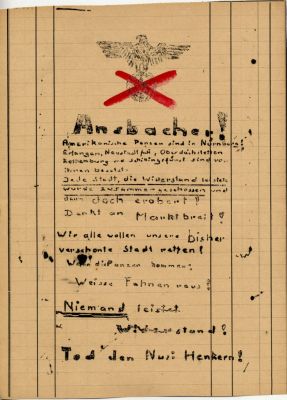 Ansbacher!
Amerikanische Panzen sind in Nürnberg!
Erlangen, Neustadt
sind von
ihnen besetzt.
Jede Stadt, die Widerstand leistete
wurde zusammengeschossen und
dann doch erobert!
Denkt an Marktbreit!
Wir alle wollen unsere bisher
verschonte Stadt retten!
Wenn die Panzen kommen:
Weisse Fahnen raus!
Niemand leistet
Widerstand!
Tod den Nazi Henkern!